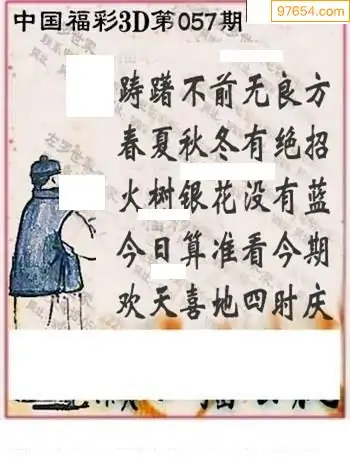 中国福彩3D第057期
97654.com
踌躇不前无良方
春夏秋冬有绝招
火树银花没有蓝
今日算准看今期
欢天喜地四时庆